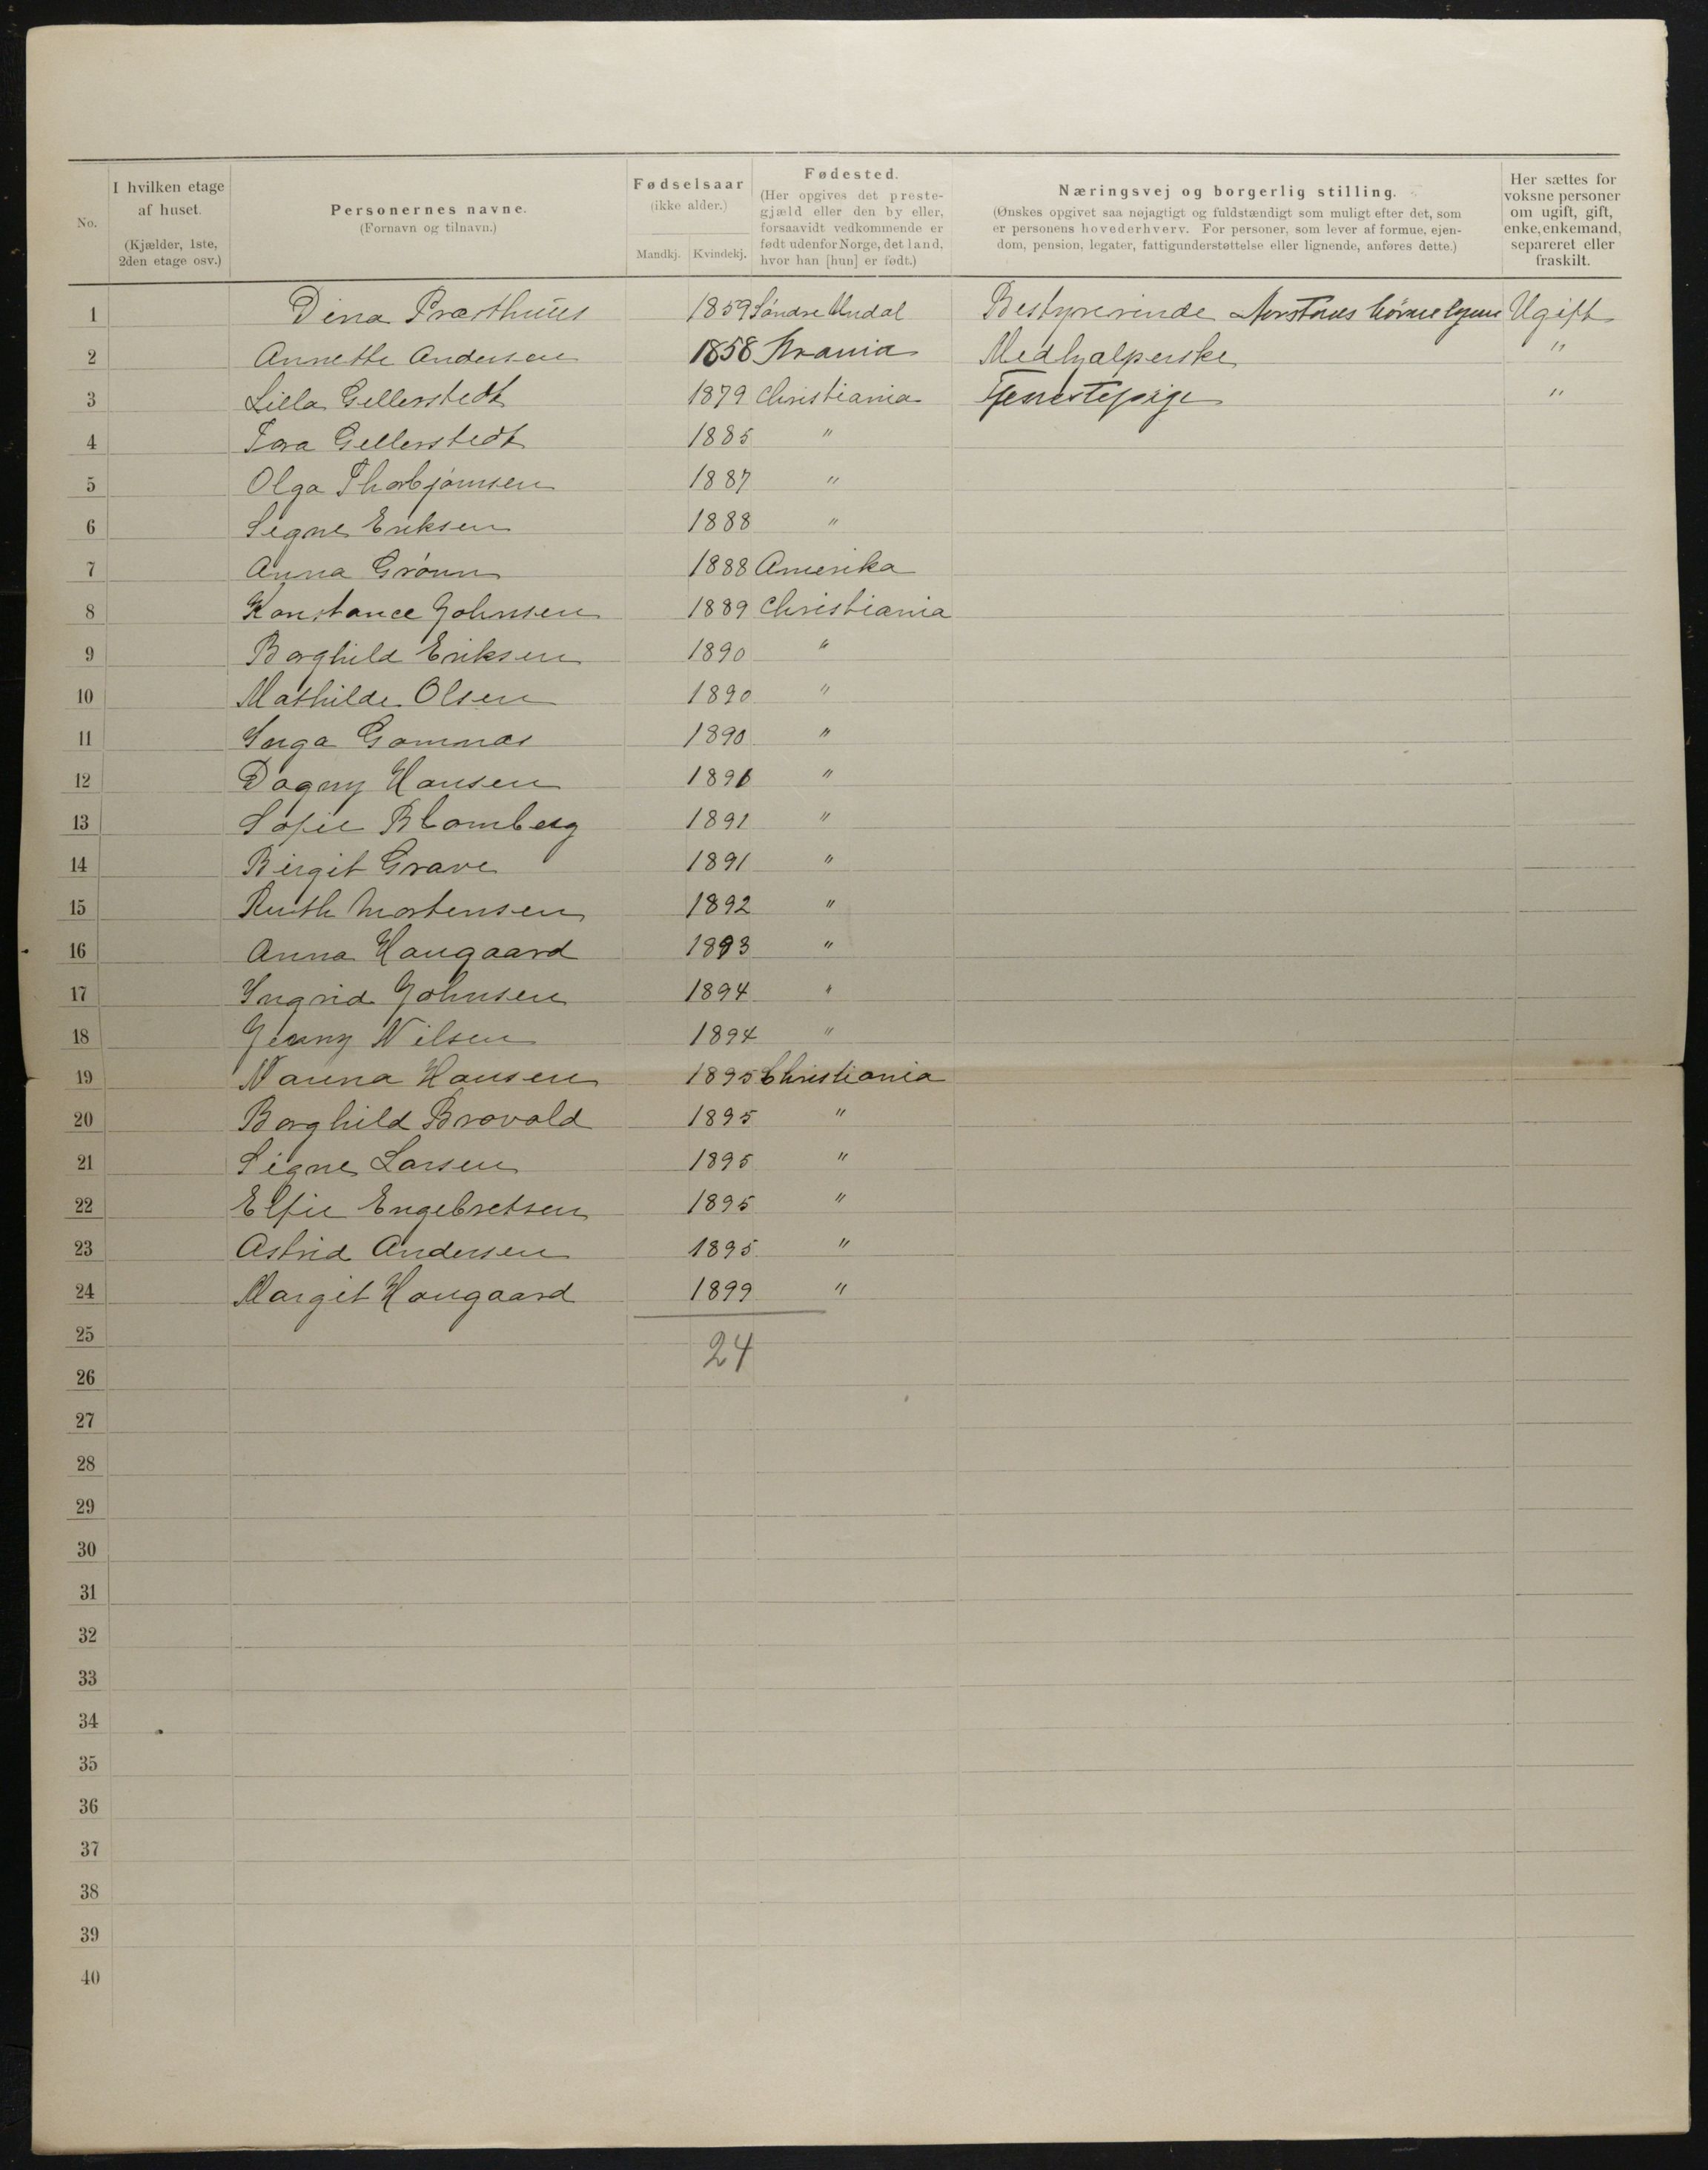 No.
I hvilken etage af huset. (Kjælder, 1ste, 2den etage osv.)
Personernes navne. (Fornavn og tilnavn.)
Fødselsaar (ikke alder.)
Mandkj. Kvindekj.
Fødested. (Her opgives det prestegjæld eller den by eller, forsaavidt vedkommende er født udenfor Norge, det land, hvor han [hun] er født.)
Næringsvej og borgerlig stilling. (Ønskes opgivet saa nøjagtigt og fuldstændigt som muligt efter det, som er personens hovederhverv. For personer, som lever af formue, ejendom, pension, legater, fattigunderstøttelse eller lignende, anføres dette.)
Her sættes for voksne personer om ugift, gift, enke, enkemand, separeret eller fraskilt.
1 Dina Præsthuus 1859 Søndre Undal Bestyrerinde Ugift
2 Annette Andersen 1858 Krania Medhjælperske "
3 Lilla Gellerstedt 1879 Christiania Tjenestepige "
4 Tora Gellerstedt 1885 "
5 Olga Thorbjørnsen 1887 "
6 Signe Eriksen 1888 "
7 Anna Grönn 1888 Amerika
8 Konstance Johnsen 1889 Christiania
9 Borghild Eriksen 1890 "
10 Mathilde Olsen 1890 "
11 Inga 1890 "
12 Dagny Hansen 1891 "
13 Sofie Blomberg 1891 "
14 Birgit Grave 1891 "
15 Ruth Mortensen 1892 "
16 Anna Haugaard 1893 "
17 Ingrid Johnsen 1894 "
18 Jenny Nilsen 1894 "
19 Nanna Hansen 1895 Christiania
20 Borghild Bravold 1895 "
21 Signe Larsen 1895 "
22 Elfie Engebretsen 1895 "
23 Astrid Andersen 1895 "
24 Margit Haugaard 1899 "
25
24
26
27
28
29
30
31
32
33
34
35
36
37
38
39
40